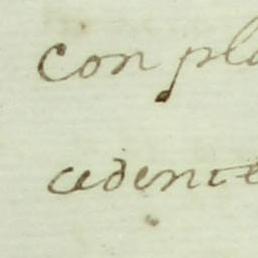 con pla
cedente